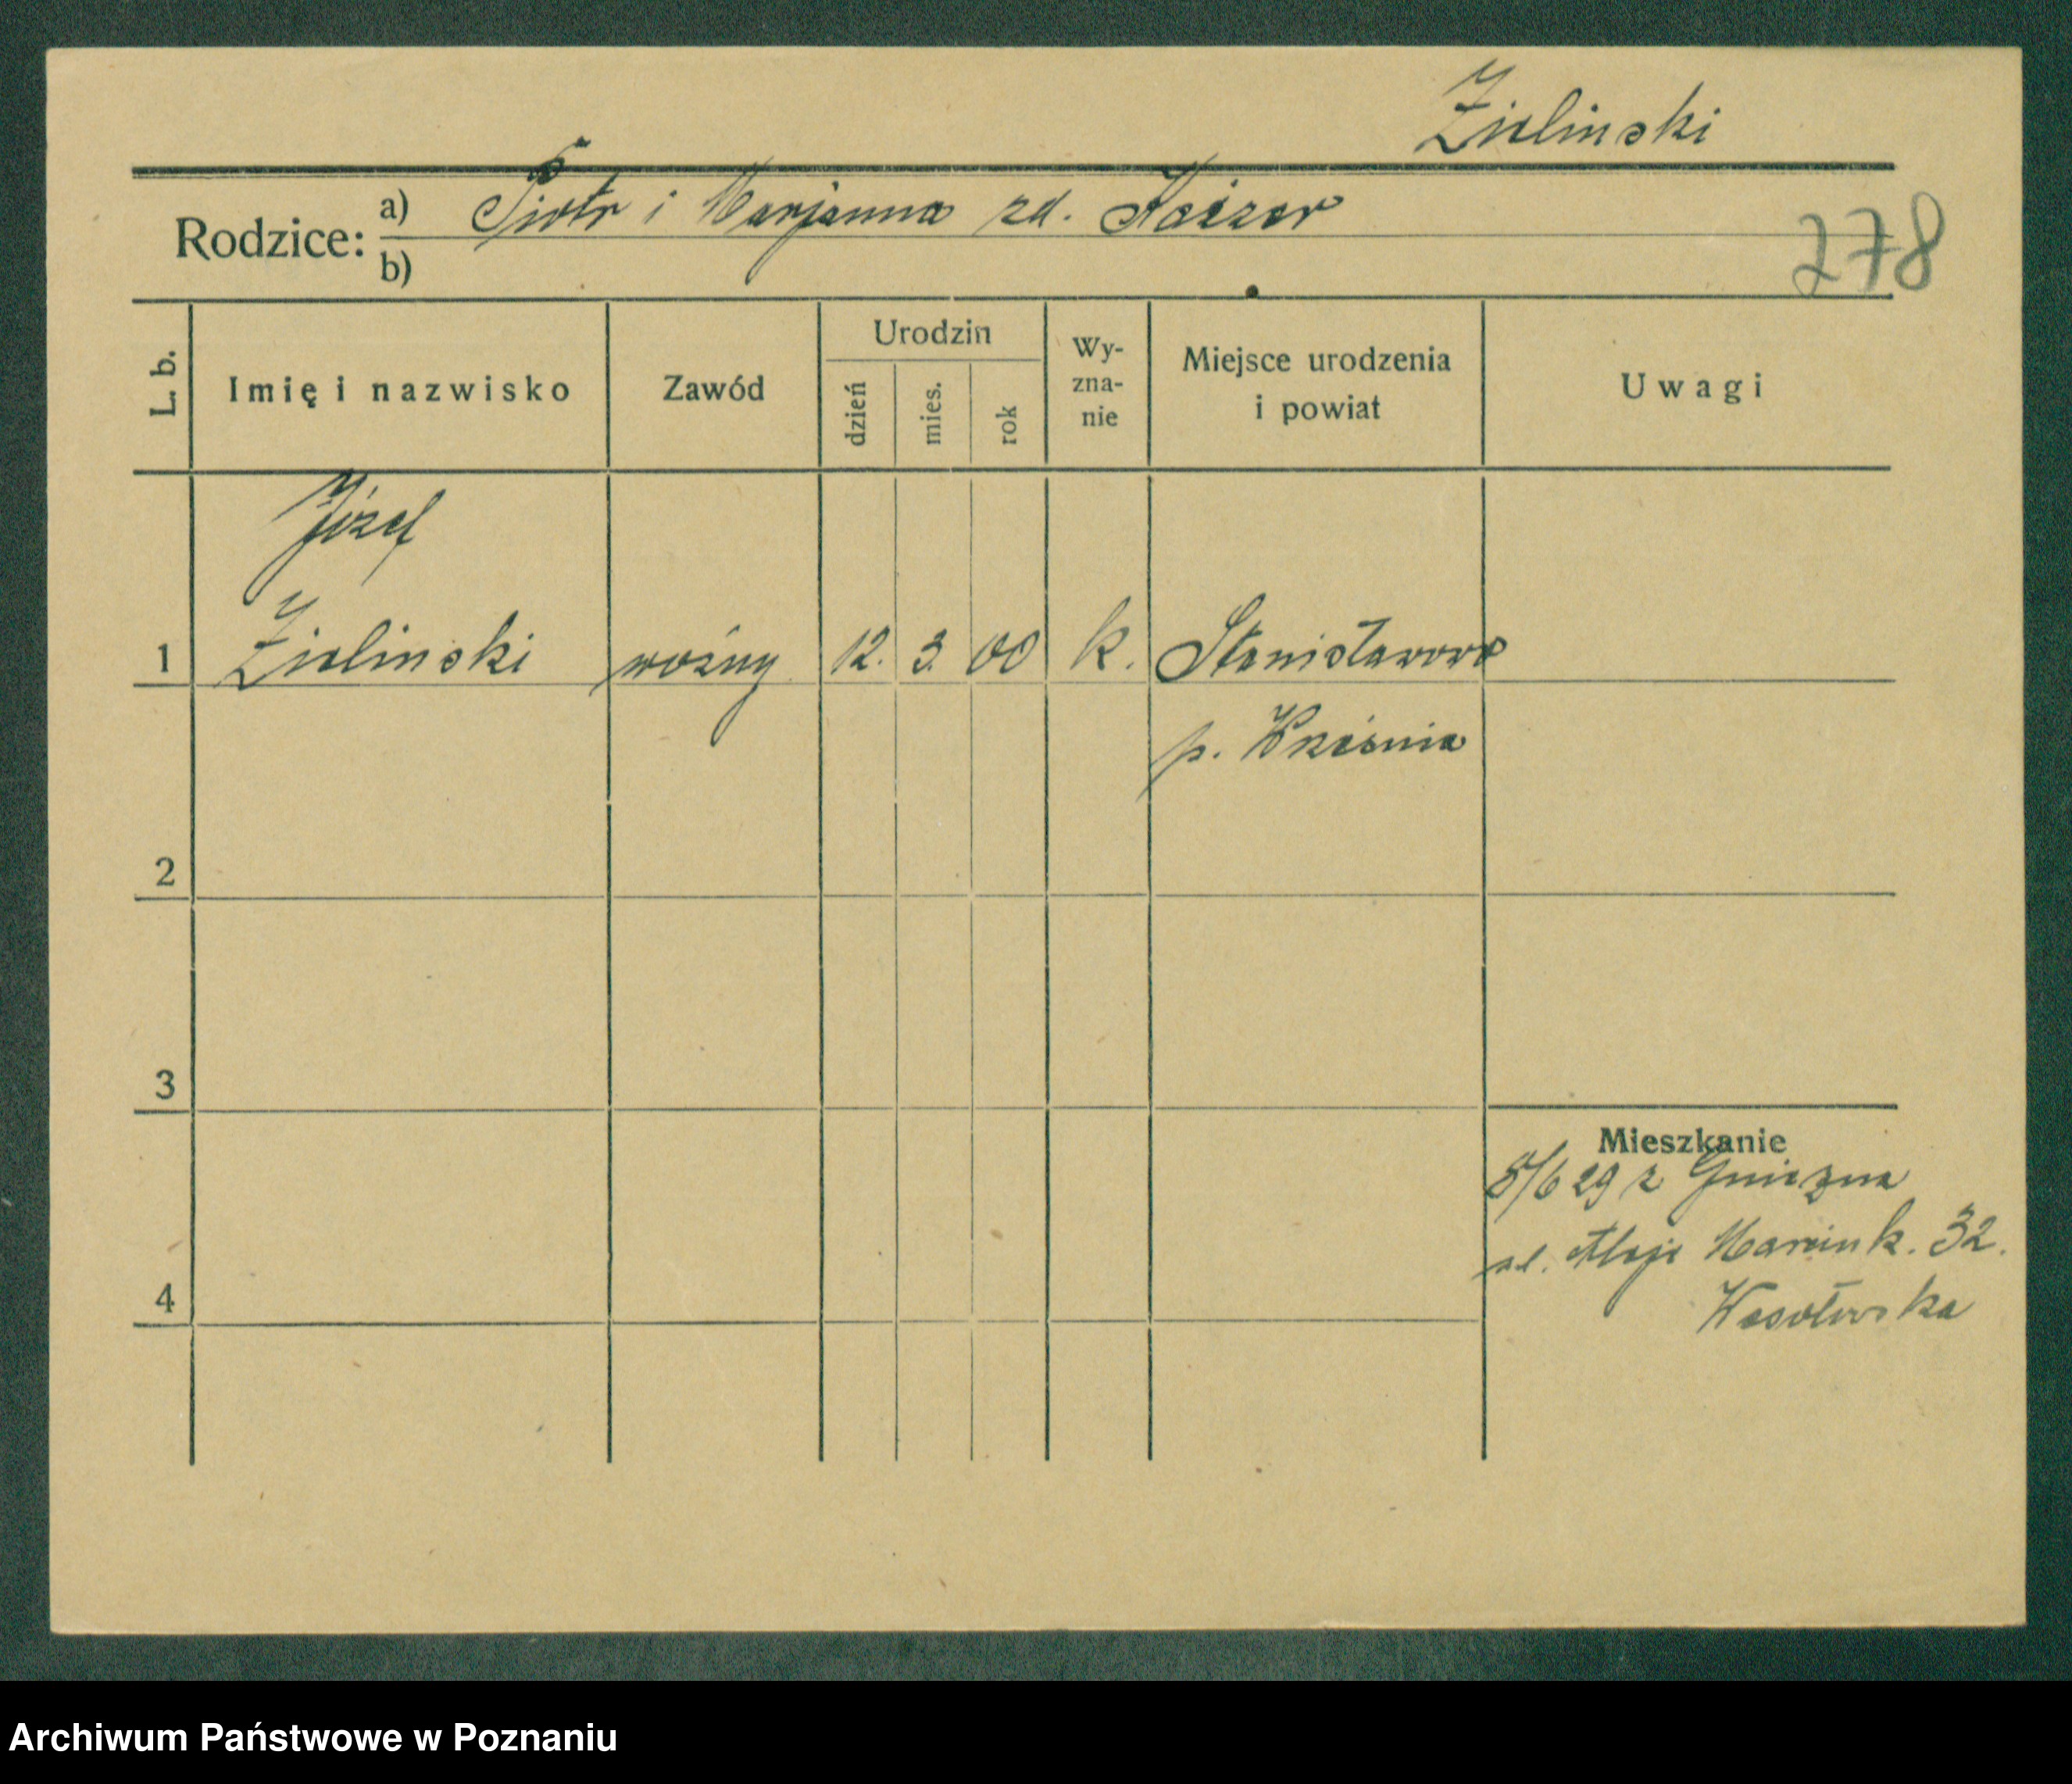 Zielinski
Rodzice: a) Piotr i Marjanna zd. Kaizer
b)
278
L. b.
Imię i nazwisko
Zawód
Urodzin
dzień
mies.
rok
Wy-
zna-
nie
Miejsce urodzenia
i powiat
Uwagi
Józef
1 Zielinski woźny 12. 3. 00 k. Stanisławowo
p. Września
2
3
Mieszkanie
8/6 29 z Gniezna
Aleje Marcink. 32.
4
Wesołowska
Archiwum Państwowe w Poznaniu